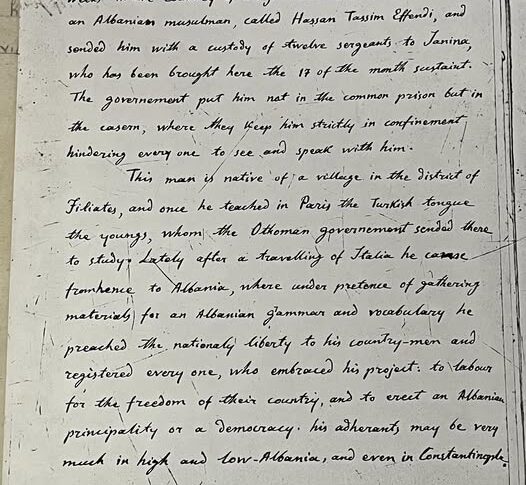 an Albanian musulman, called Hassan Tassim Effendi, and
sended him with a custody of twelve sergeants to Janina,
who has been brought here the 17 of the month sustaint.
The governement put him not in the common prison but in
the casern, where they keep him strictly in confinement,
hindering every one to see and speak with him.
This man is native of a village in the district of
Filiates, and once he teached in Paris the Turkish tongue
the youngs, whom the Othoman governement sended there
to study. Lately after a travelling of Italia he came
fromhence to Albania, where under pretence of gathering
materials for an Albanian grammar and vocabulary he
preached the nationaly liberty to his country-men and
registered every one, who embraced his project: to labour
for the freedom of their country, and to erect an Albanian
principality or a democracy. his adherants may be very
much in high and low-Albania, and even in Constantinople.